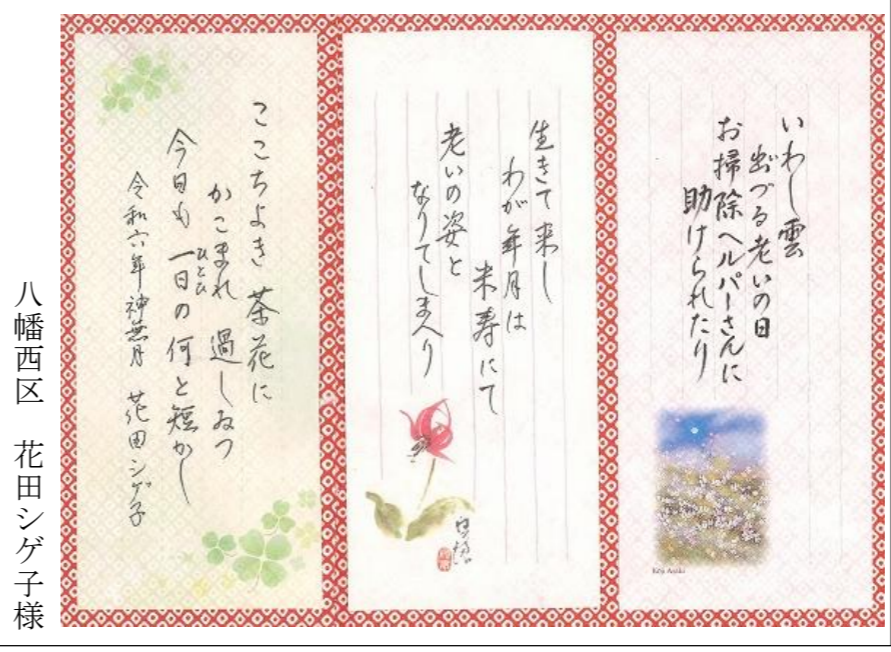 いわし雲
出づる老いの日
お掃除ヘルパーさんに
助けられたり
生きて来し
わが年月は
米寿にて
老いの姿と
なりてしまへり
ここちよき 茶花に
かこまれ 過しゐつ
今日も 一日の 何と短かし
ひとひ
令和六年 神無月 花田シゲ子
八幡西区 花田シゲ子様